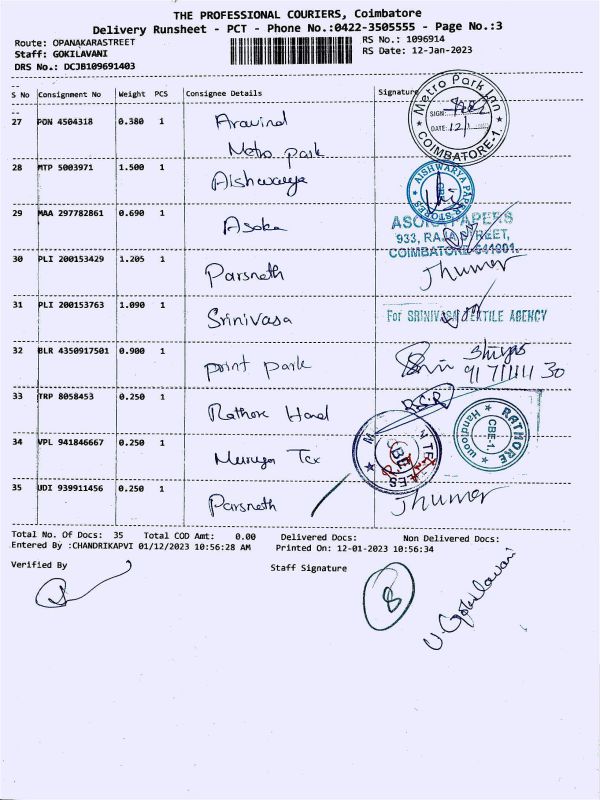 THE PROFESSIONAL COURIERS, Coimbatore
Delivery Runsheet - PCT - Phone No.:0422-3505555 - Page No.:3
Route: OPANAKARASTREET
RS No.: 1096914
Staff: GOKILAVANI
RS Date: 12-Jan-2023
DRS No.: DCJB109691403
S No Consignment No Weight PCS Consignee Details Signature
27 PON 4504318 0.380 1 Aravind
Metro park
Metro Park Inn
SIGN:
DATE: 12/1
COIMBATORE-1.
28 MTP 5003971 1.500 1 Aishwarya
AISHWARYA PAPER STORES
29 MAA 297782861 0.690 1 Asoka
ASOKA PAPERS
933, RAJA STREET,
COIMBATORE-641001.
30 PLI 200153429 1.205 1 Parsneth Jhumar
31 PLI 200153763 1.090 1 Srinivasa For SRINIVASA TEXTILE AGENCY
32 BLR 4350917501 0.900 1 print park
33 TRP 8058453 0.250 1 Rathore Hand
RATHORE
Handloom
CBE-1
34 VPL 941846667 0.250 1 Muruga Tex
35 UDI 939911456 0.250 1 Parsneth Jhumar
Total No. Of Docs: 35 Total COD Amt: 0.00 Delivered Docs: Non Delivered Docs:
Entered By :CHANDRIKAPVI 01/12/2023 10:56:28 AM Printed On: 12-01-2023 10:56:34
Verified By
Staff Signature
8
V. Gokilavani